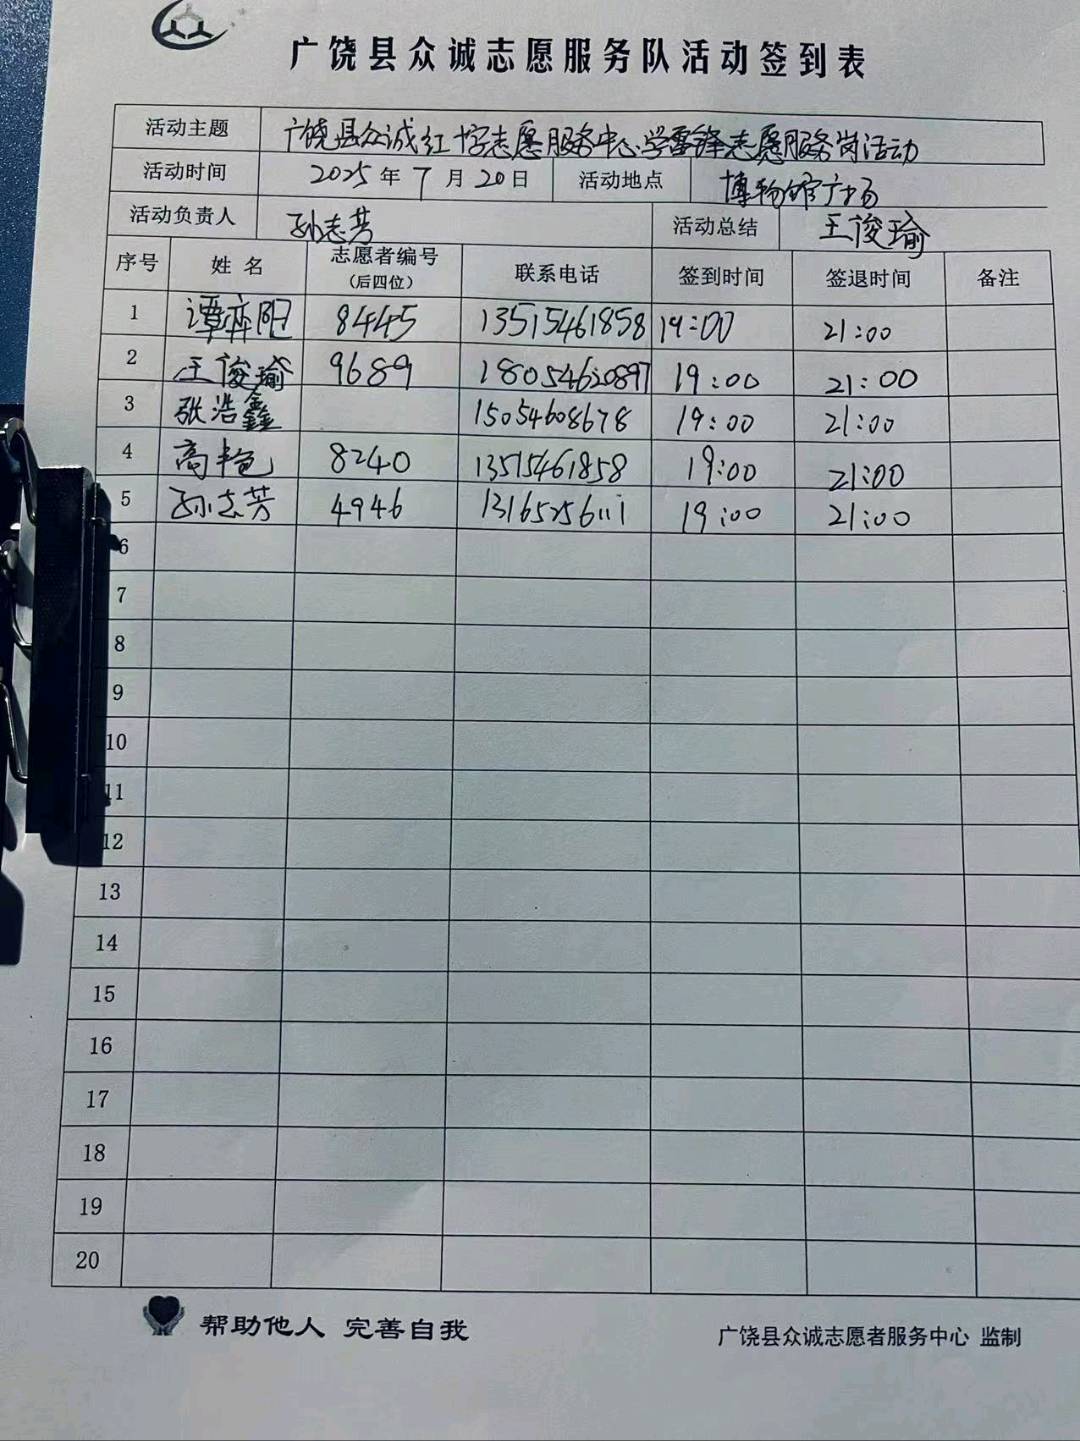 广饶县众诚志愿服务队活动签到表
活动主题 广饶县众诚红十字志愿服务中心学雷锋志愿服务岗活动
活动时间 2025年7月20日 活动地点 博物馆广场
活动负责人 孙志芳 活动总结 王俊瑜
序号 姓名 志愿者编号(后四位) 联系电话 签到时间 签退时间 备注
1 谭弈阳 8445 13515461858 19:00 21:00
2 王俊瑜 9689 18054620897 19:00 21:00
3 张浩鑫 15054608678 19:00 21:00
4 高艳 8240 13515461858 19:00 21:00
5 孙志芳 4946 13165256111 19:00 21:00
6
7
8
9
10
11
12
13
14
15
16
17
18
19
20
帮助他人 完善自我
广饶县众诚志愿者服务中心 监制